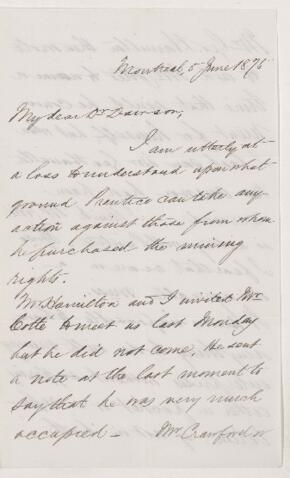 Montreal, 5 June 1875
My dear Dr Dawson,
I am utterly at
a loss to understand upon what
ground Prentice can take any
action against those from whom
he purchased the mining
rights.
Mr Hamilton and I invited Mr
Cotté to meet us last Monday
but he did not come. He sent
a note at the last moment to
say that he was very much
occupied — Mr Crawford